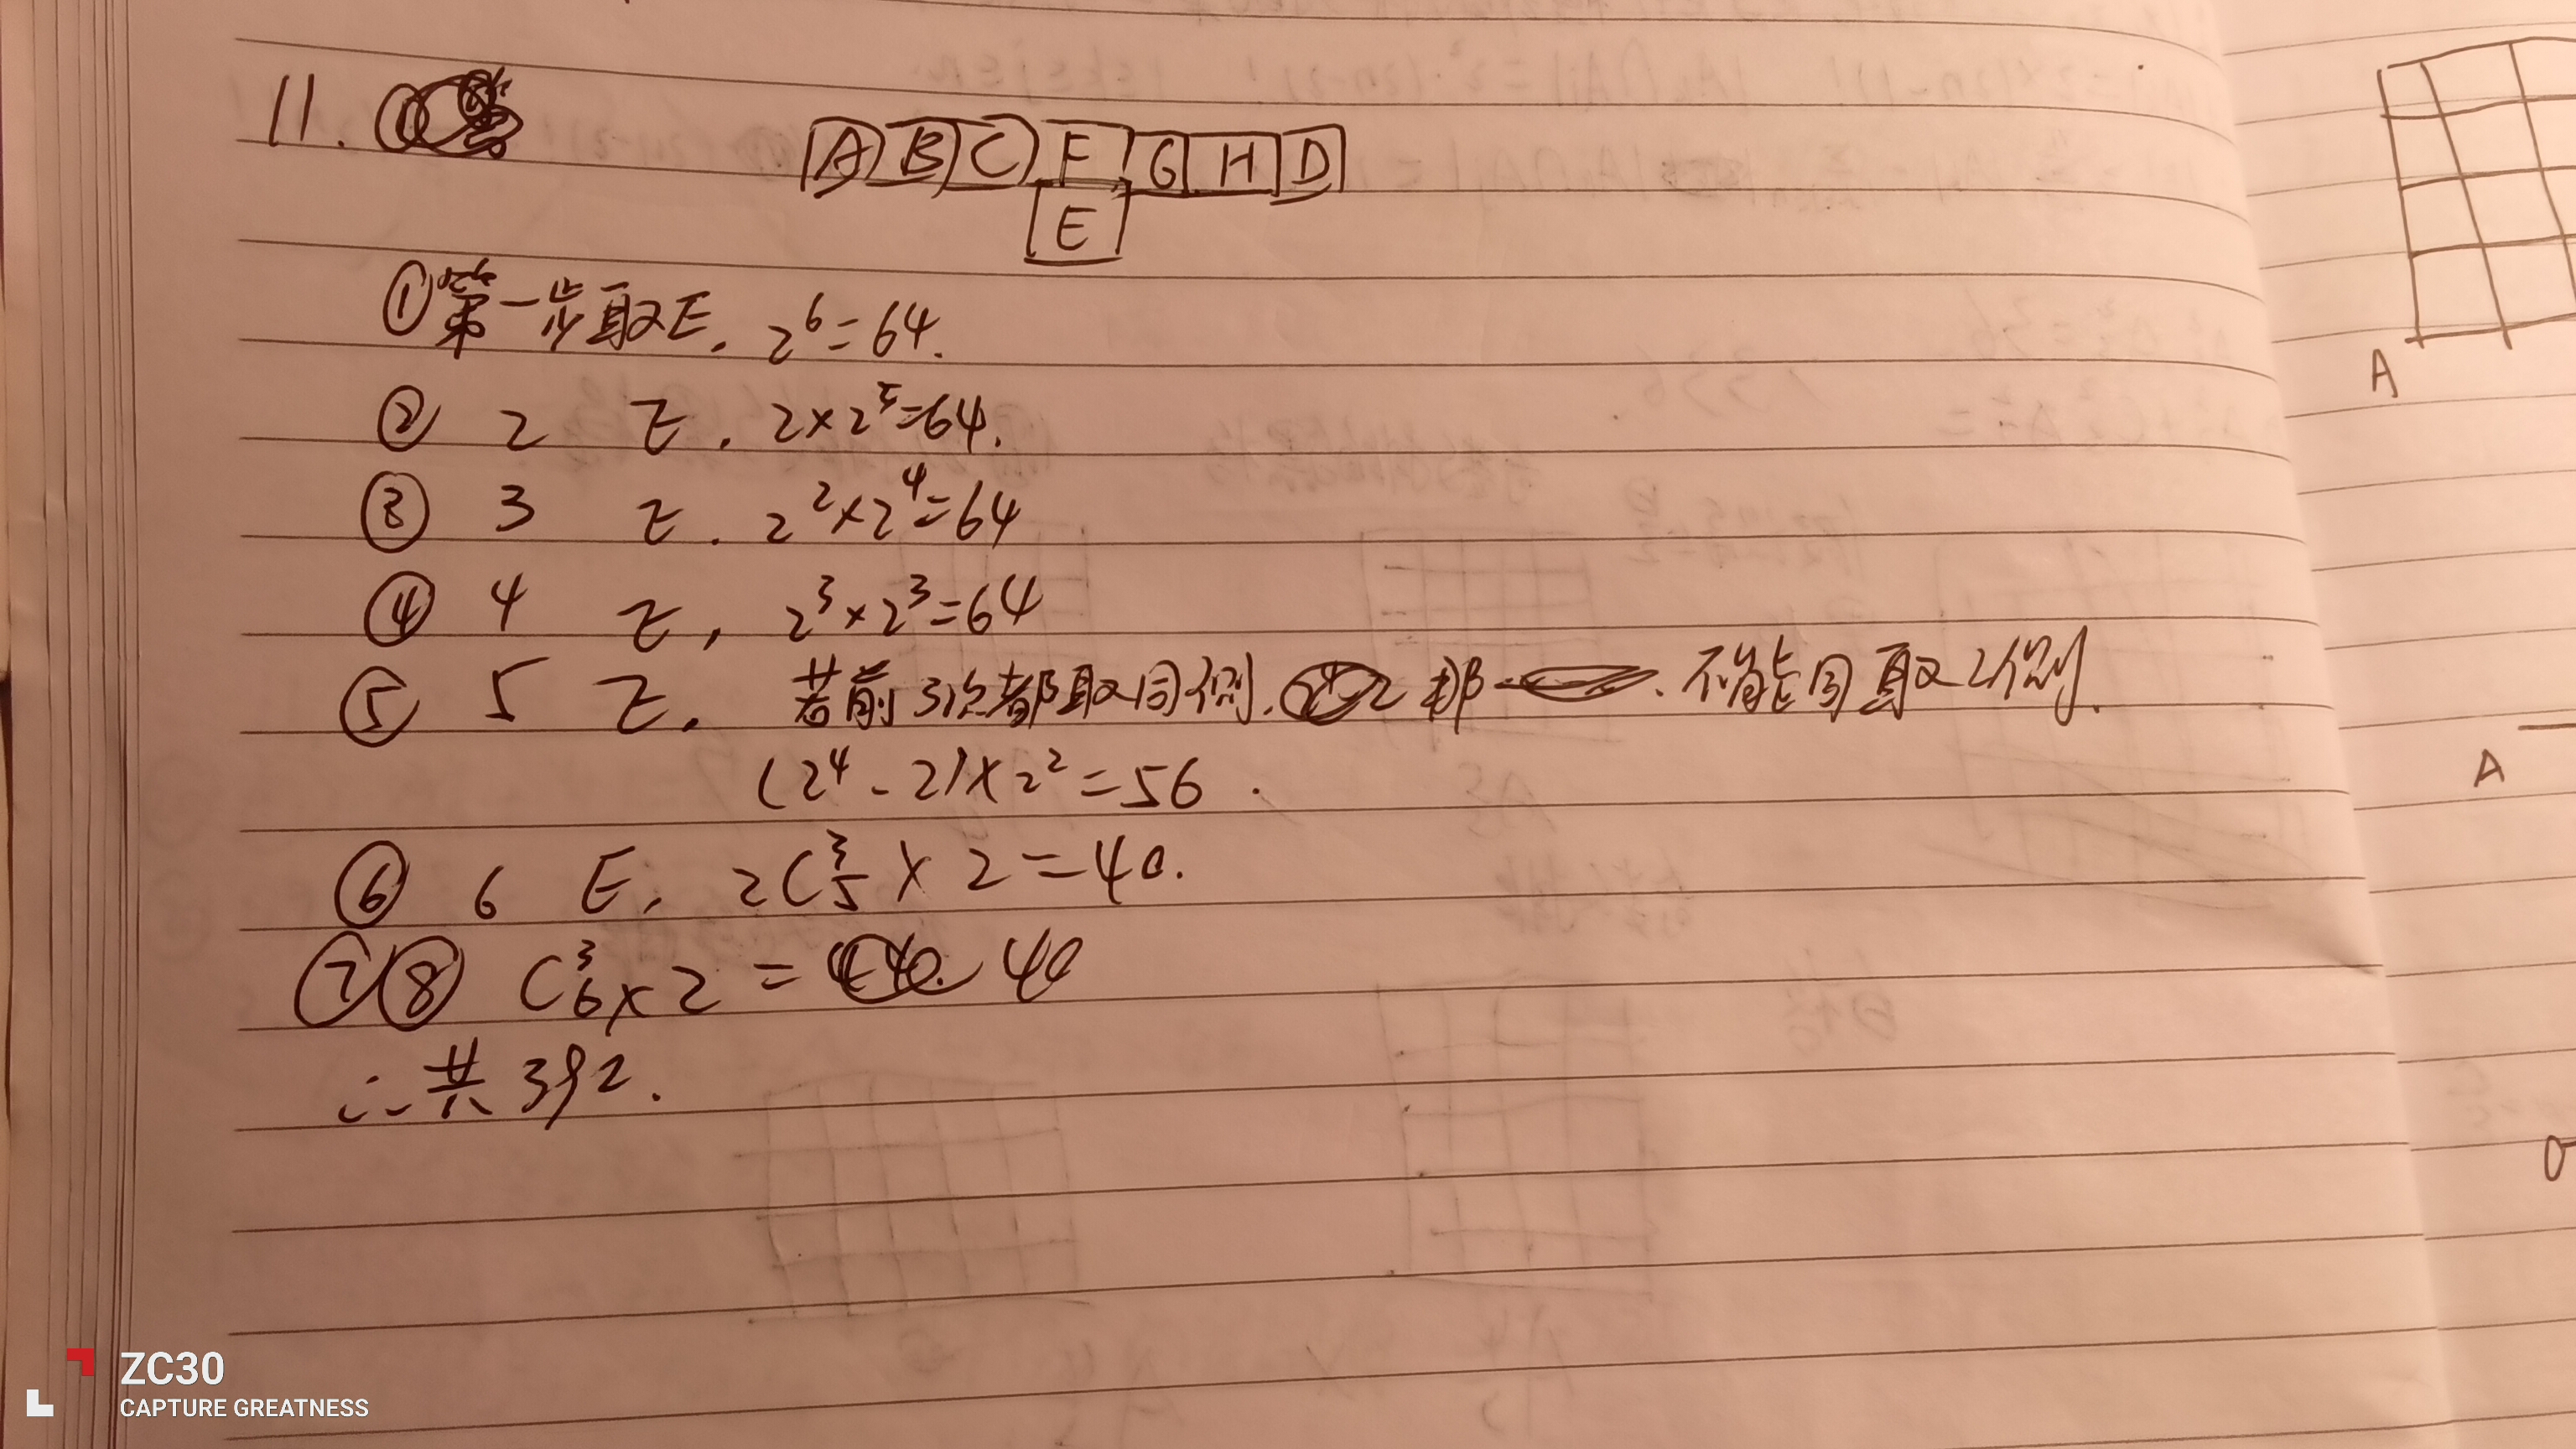 11.
A B C F G H D
E
①第一步取E. 2^6=64.
② 2 E. 2×2^5=64.
③ 3 E. 2^2×2^4=64
④ 4 E, 2^3×2^3=64
⑤ 5 E. 若前3次都取同侧. 那 . 不能同取2侧.
(2^4-2)×2^2=56.
⑥ 6 E. 2C_5^3×2=40.
⑦⑧ C_6^3×2= 40
∴共392.
A
A
ZC30
CAPTURE GREATNESS